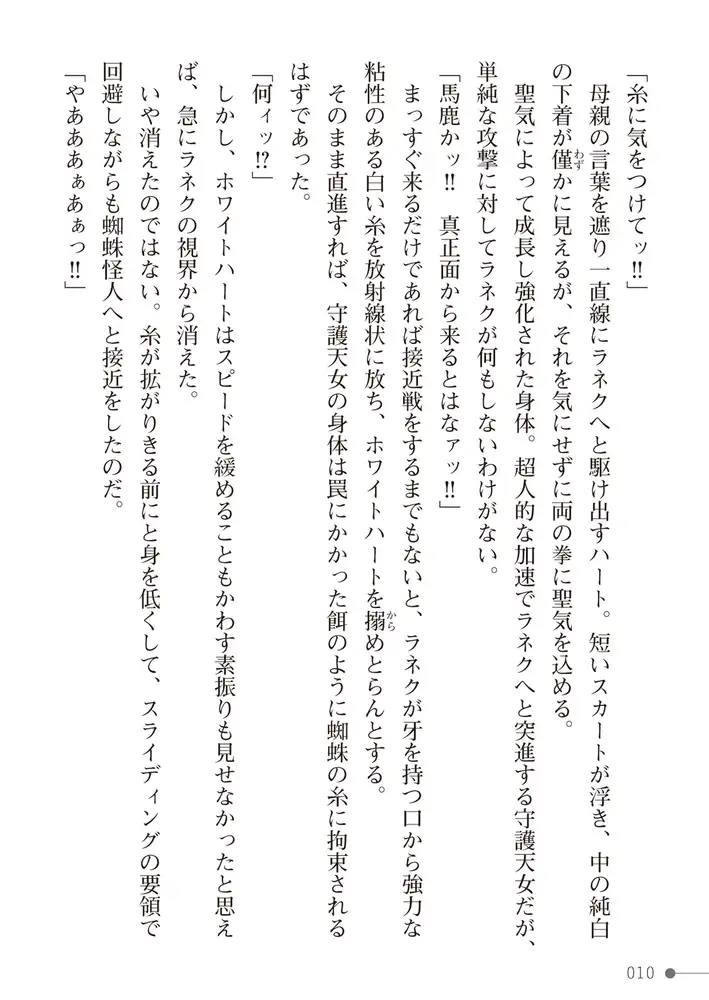 「糸に気をつけてッ‼」
　母親の言葉を遮り一直線にラネクへと駆け出すハート。短いスカートが浮き、中の純白
の下着が僅かに見えるが、それを気にせずに両の拳に聖気を込める。
わず
　聖気によって成長し強化された身体。超人的な加速でラネクへと突進する守護天女だが、
単純な攻撃に対してラネクが何もしないわけがない。
「馬鹿かッ‼　真正面から来るとはなァッ‼」
　まっすぐ来るだけであれば接近戦をするまでもないと、ラネクが牙を持つ口から強力な
粘性のある白い糸を放射線状に放ち、ホワイトハートを搦めとらんとする。
から
　そのまま直進すれば、守護天女の身体は罠にかかった餌のように蜘蛛の糸に拘束される
はずであった。
「何ィッ⁉」
　しかし、ホワイトハートはスピードを緩めることもかわす素振りも見せなかったと思え
ば、急にラネクの視界から消えた。
　いや消えたのではない。糸が拡がりきる前にと身を低くして、スライディングの要領で
回避しながらも蜘蛛怪人へと接近をしたのだ。
「やあああぁあぁっ‼」
010